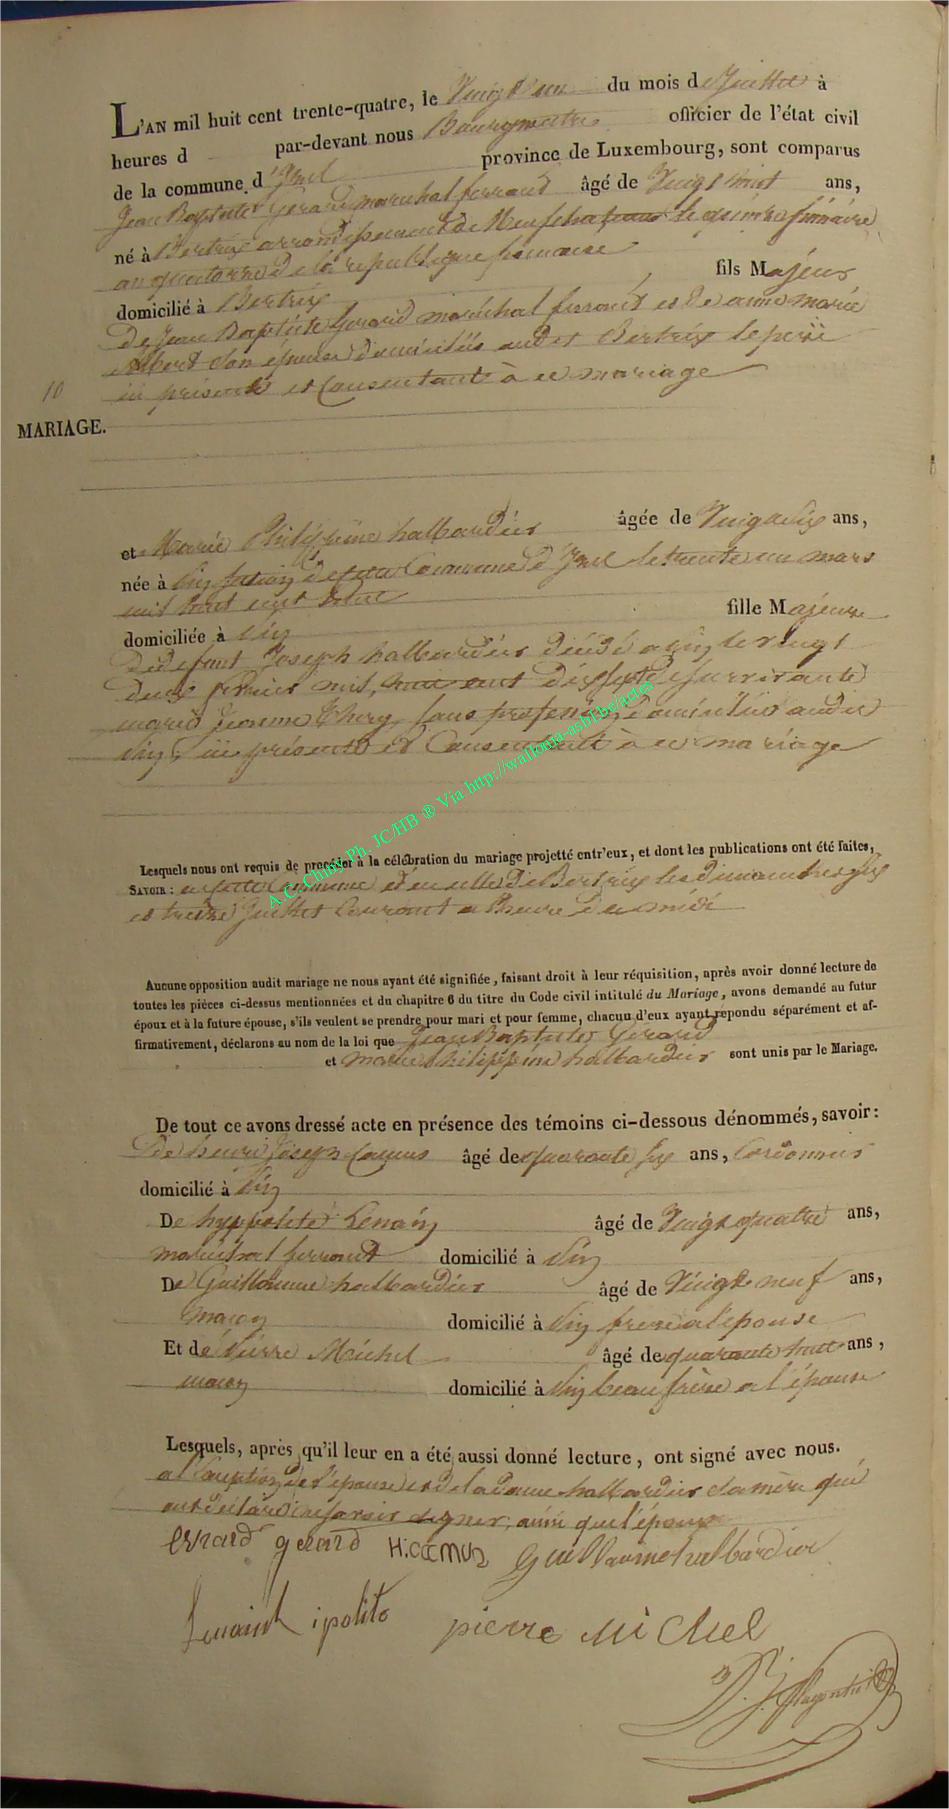 L'AN mil huit cent trente-quatre, le Vingt un du mois de Juillet à
heures d par-devant nous Bourgmestre officier de l'état civil
de la commune d' Izel province de Luxembourg, sont comparus
Jean Baptiste Gerard marechal ferrant âgé de Vingt huit ans,
né à Bertrix arrondissement de Neufchateau le quinze frimaire
an quatorze de la republique francaise
domicilié à Bertrix fils Majeur
de Jean Baptiste Gerard maréchal ferrant et de anne marie
albert son épouse domiciliés audit Bertrix le père
ici présent et Consentant à ce mariage
10
MARIAGE.
et Marie Philippine halbardier âgée de Vingt six ans,
née à Pin de cette Commune d'Izel le trente un mars
mil huit cent huit
domiciliée à Pin fille Majeure
De defunt Joseph halbardier décédé a Pin le vingt
deux fevrier mil huit cent dix sept et survivante
marie jeanne Thiry sans profession domiciliée audit
Pin, ici présente et Consentante à ce mariage
Lesquels nous ont requis de procéder à la célébration du mariage projetté entr'eux, et dont les publications ont été faites,
SAVOIR : en cette Commune et en celle de Bertrix les dimanches six
et treize Juillet Courant a l'heure de midi
Aucune opposition audit mariage ne nous ayant été signifiée, faisant droit à leur réquisition, après avoir donné lecture de
toutes les pièces ci-dessus mentionnées et du chapitre 6 du titre du Code civil intitulé du Mariage, avons demandé au futur
époux et à la future épouse, s'ils veulent se prendre pour mari et pour femme, chacun d'eux ayant répondu séparément et af-
firmativement, déclarons au nom de la loi que Jean Baptiste Gerard
et marie philippine halbardier sont unis par le Mariage.
De tout ce avons dressé acte en présence des témoins ci-dessous dénommés, savoir :
De henri Joseph Camus âgé de quarante six ans, Cordonnier
domicilié à Pin
De hyppolite Lenain âgé de Vingt quatre ans,
maréchal ferrant domicilié à Pin
De Guillaume halbardier âgé de Vingt neuf ans,
maçon domicilié à Pin frere a l'épouse
Et de Pierre Michel âgé de quarante huit ans,
maçon domicilié à Pin beau frère a l'épouse
Lesquels, après qu'il leur en a été aussi donné lecture, ont signé avec nous.
a l'exception de l'épouse et de la dame halbardier sa mère qui
ont déclaré ne savoir signer, ainsi que l'époux
gerard H. camus Guillaume halbardier
Lenain ipolite pierre Michel
A.C. Chiny Ph. JC/HB ® Via http://wallonia-asbl.be/actes